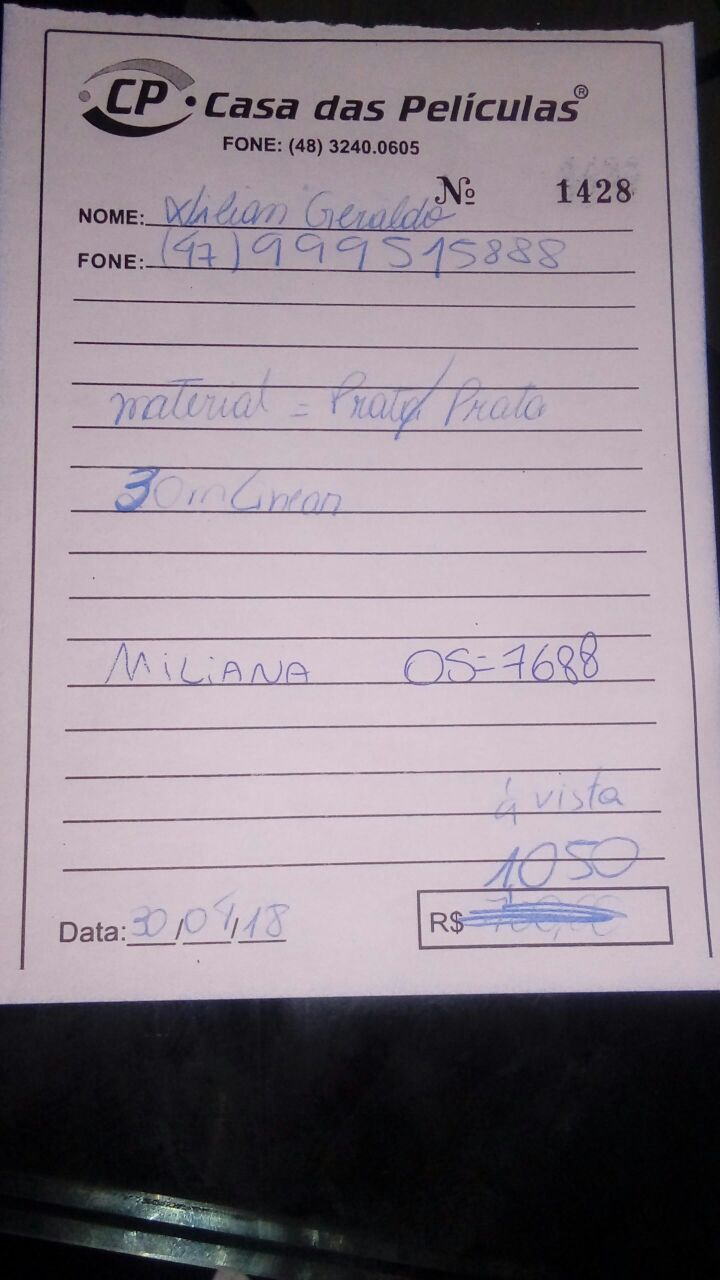 CP Casa das Películas®
FONE: (48) 3240.0605
Nº 1428
NOME: Geraldo
FONE: (47) 999515888
material = Prata/Prata
30m Linear
MILIANA OS=7688
à vista
1050
Data: 30/04/18 R$